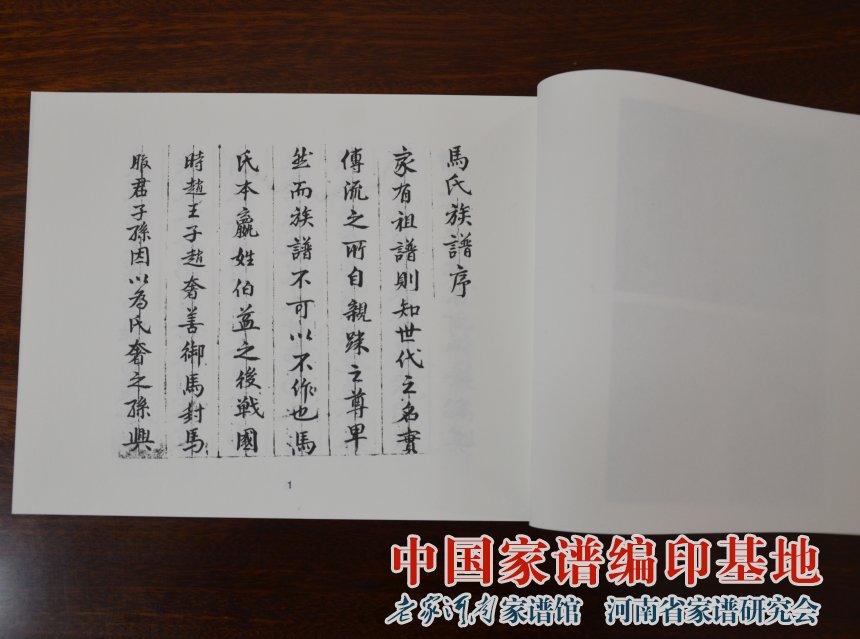 馬氏族譜序
家有祖譜則知世代之名實
傳流之所自親踈之尊卑
然而族譜不可以不作也馬
氏本嬴姓伯益之後戰國
時趙王子趙奢善御馬封馬
服君子孫因以為氏奢之孫興
1
中国家谱编印基地
老家河南家谱馆 河南省家谱研究会